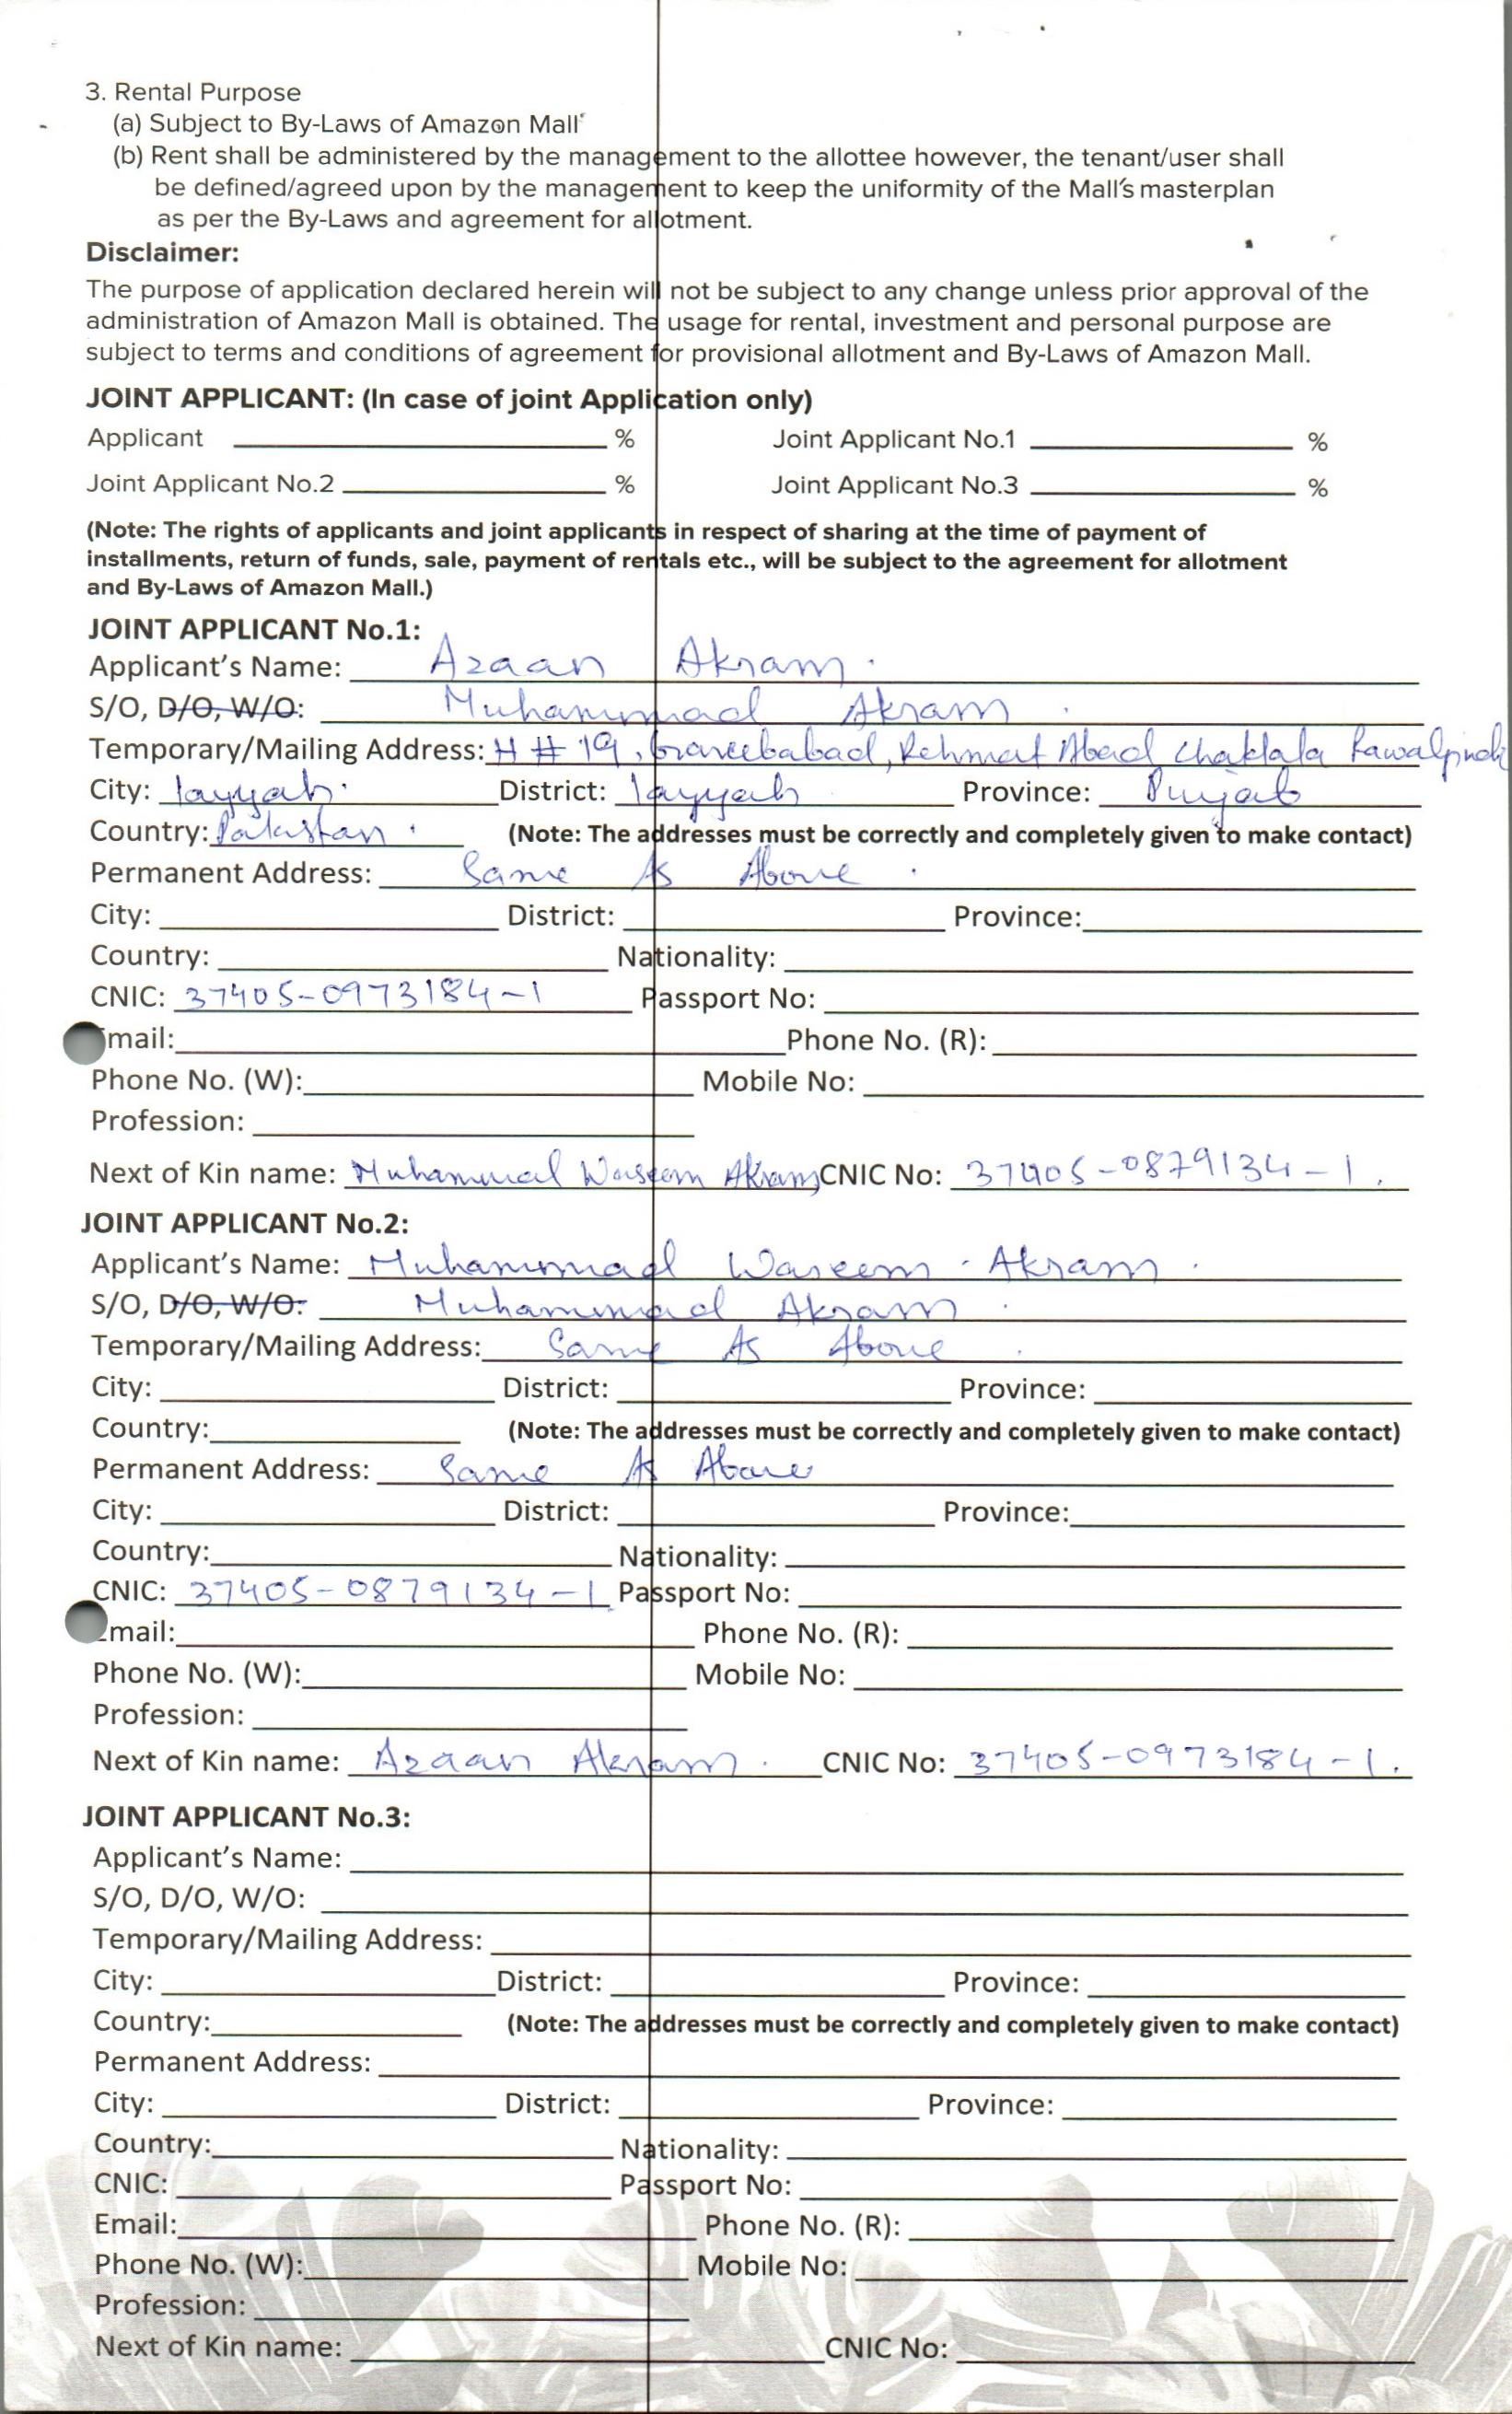 3. Rental Purpose
(a) Subject to By-Laws of Amazon Mall
(b) Rent shall be administered by the management to the allottee however, the tenant/user shall
be defined/agreed upon by the management to keep the uniformity of the Mall's masterplan
as per the By-Laws and agreement for allotment.
Disclaimer:
The purpose of application declared herein will not be subject to any change unless prior approval of the
administration of Amazon Mall is obtained. The usage for rental, investment and personal purpose are
subject to terms and conditions of agreement for provisional allotment and By-Laws of Amazon Mall.
JOINT APPLICANT: (In case of joint Application only)
Applicant ________ % Joint Applicant No.1 ________ %
Joint Applicant No.2 ________ % Joint Applicant No.3 ________ %
(Note: The rights of applicants and joint applicants in respect of sharing at the time of payment of
installments, return of funds, sale, payment of rentals etc., will be subject to the agreement for allotment
and By-Laws of Amazon Mall.)
JOINT APPLICANT No.1:
Applicant's Name: Azaan Akram.
S/O, D/O, W/O: Muhammad Akram.
Temporary/Mailing Address: H # 19, Grareebabad, Rehmat Abad Chaklala Rawalpindi
City: layyah. District: layyah Province: Punjab
Country: Pakistan. (Note: The addresses must be correctly and completely given to make contact)
Permanent Address: Same As Above.
City: ________ District: ________ Province: ________
Country: ________ Nationality: ________
CNIC: 37405-0973184-1 Passport No: ________
Email: ________ Phone No. (R): ________
Phone No. (W): ________ Mobile No: ________
Profession: ________
Next of Kin name: Muhammad Waseem Akram, CNIC No: 37405-0879134-1.
JOINT APPLICANT No.2:
Applicant's Name: Muhammad Waseem Akram.
S/O, D/O, W/O: Muhammad Akram.
Temporary/Mailing Address: Same As Above.
City: ________ District: ________ Province: ________
Country: ________ (Note: The addresses must be correctly and completely given to make contact)
Permanent Address: Same As Above
City: ________ District: ________ Province: ________
Country: ________ Nationality: ________
CNIC: 37405-0879134-1. Passport No: ________
Email: ________ Phone No. (R): ________
Phone No. (W): ________ Mobile No: ________
Profession: ________
Next of Kin name: Azaan Akram. CNIC No: 37405-0973184-1.
JOINT APPLICANT No.3:
Applicant's Name: ________
S/O, D/O, W/O: ________
Temporary/Mailing Address: ________
City: ________ District: ________ Province: ________
Country: ________ (Note: The addresses must be correctly and completely given to make contact)
Permanent Address: ________
City: ________ District: ________ Province: ________
Country: ________ Nationality: ________
CNIC: ________ Passport No: ________
Email: ________ Phone No. (R): ________
Phone No. (W): ________ Mobile No: ________
Profession: ________
Next of Kin name: ________ CNIC No: ________